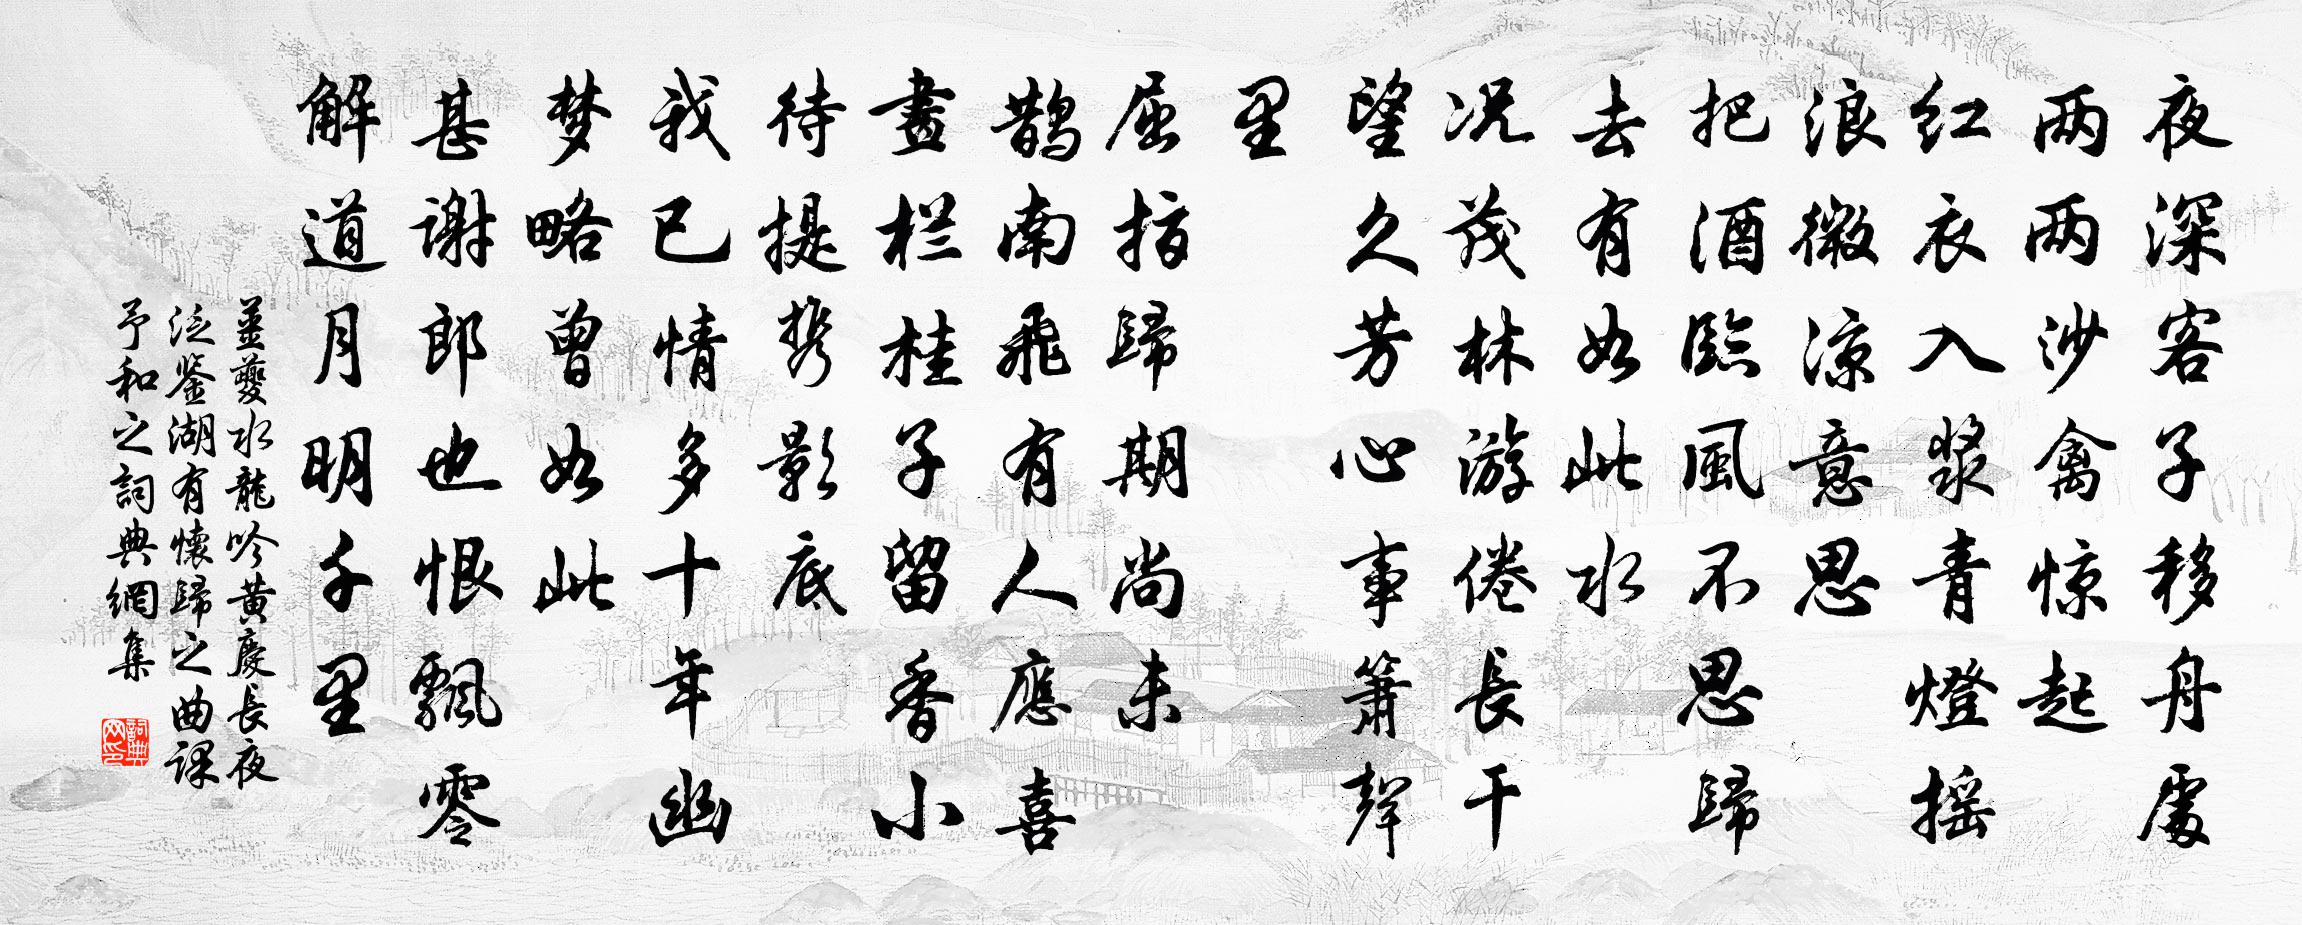 夜深客子移舟處
两两沙禽惊起
红衣入桨青燈摇
浪微凉意思
把酒臨風不思歸
去有如此水
况茂林游倦長干
望久芳心事箫聲
里
屈指歸期尚未
鹊南飛有人應喜
畫栏桂子留香小
待提携影底
我已情多十年幽
梦略曾如此
甚谢郎也恨飄零
解道月明千里
姜夔水龍吟黄慶長夜
泛鉴湖有懷歸之曲課
予和之詞典網集
詞典网印